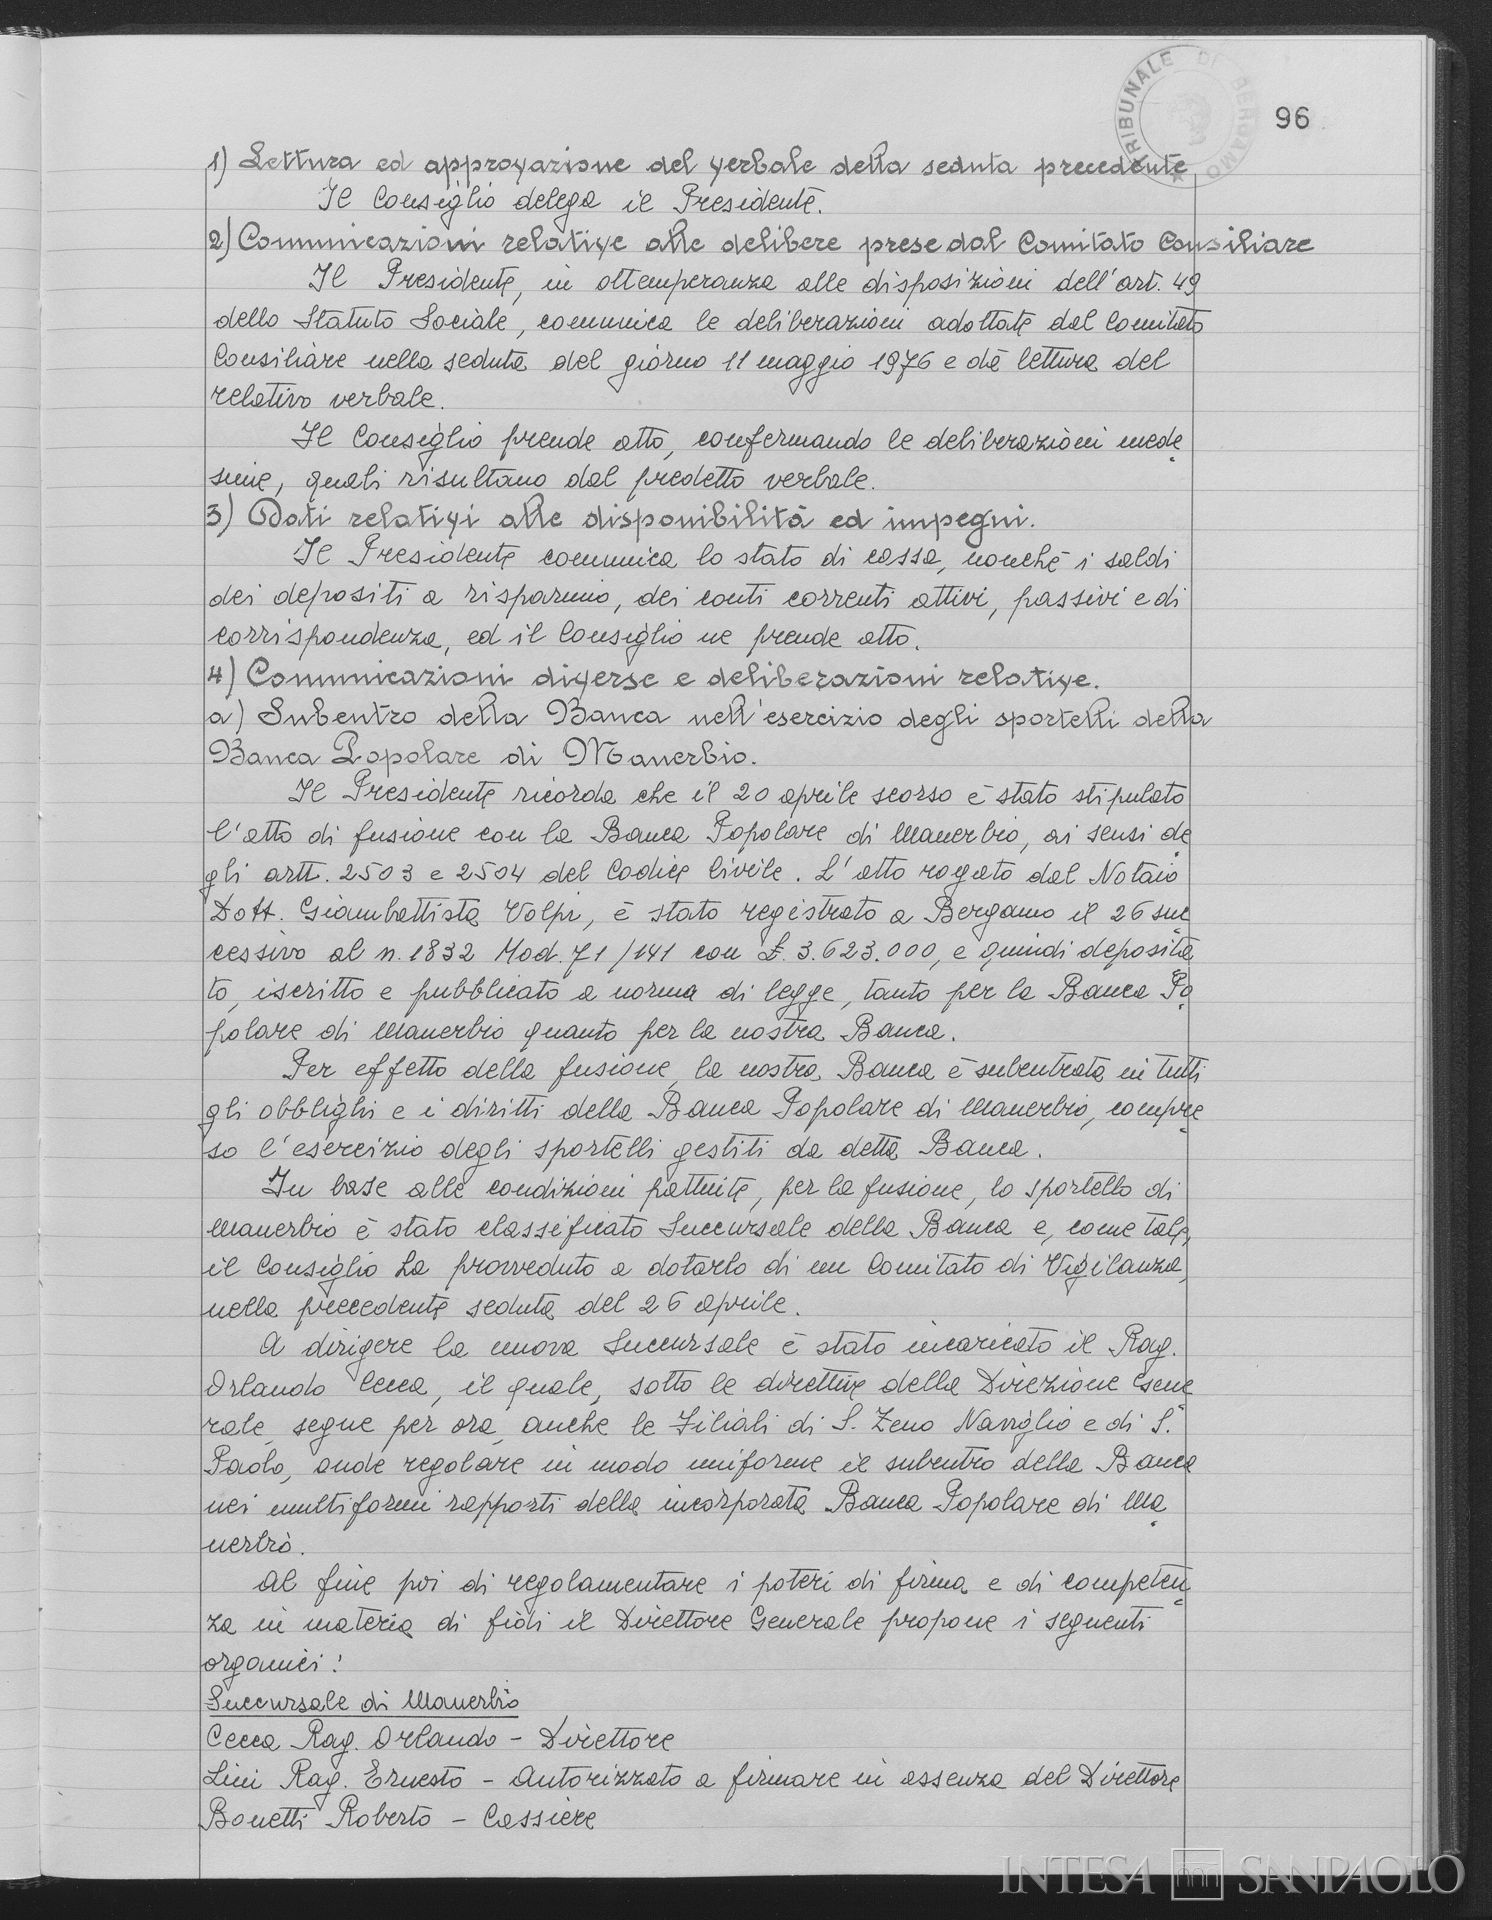 TRIBUNALE DI BERGAMO
96
1) Lettura ed approvazione del verbale della seduta precedente
Il Consiglio delega il Presidente.
2) Comunicazioni relative alle delibere prese dal Comitato Consiliare
Il Presidente, in ottemperanza alle disposizioni dell'art. 49
dello Statuto Sociale, comunica le deliberazioni adottate dal Comitato
Consiliare nella seduta del giorno 11 maggio 1976 e dà lettura del
relativo verbale.
Il Consiglio prende atto, confermando le deliberazioni mede
sime, quali risultano dal predetto verbale.
3) Dati relativi alle disponibilità ed impegni.
Il Presidente comunica lo stato di cassa, nonchè i saldi
dei depositi a risparmio, dei conti correnti attivi, passivi e di
corrispondenza, ed il Consiglio ne prende atto.
4) Comunicazioni diverse e deliberazioni relative.
a) Subentro della Banca nell'esercizio degli sportelli della
Banca Popolare di Manerbio.
Il Presidente ricorda che il 20 aprile scorso è stato stipulato
l'atto di fusione con la Banca Popolare di Manerbio, ai sensi de
gli artt. 2503 e 2504 del Codice Civile. L'atto rogato dal Notaio
Dott. Giambattista Volpi, è stato registrato a Bergamo il 26 suc
cessivo al n. 1832 Mod. 71/141 con £. 3.623.000, e quindi deposita
to, iscritto e pubblicato a norma di legge, tanto per la Banca Po
polare di Manerbio quanto per la nostra Banca.
Per effetto della fusione, la nostra Banca è subentrata in tutti
gli obblighi e i diritti della Banca Popolare di Manerbio, compre
so l'esercizio degli sportelli gestiti da detta Banca.
In base alle condizioni pattuite, per la fusione, lo sportello di
Manerbio è stato classificato Succursale della Banca e, come tale,
il Consiglio ha provveduto a dotarlo di un Comitato di Vigilanza,
nella precedente seduta del 26 aprile.
A dirigere la nuova Succursale è stato incaricato il Rag.
Orlando Cecca, il quale, sotto le direttive della Direzione Gene
rale, segue per ora, anche le Filiali di S. Zeno Naviglio e di S.
Paolo, onde regolare in modo uniforme il subentro della Banca
nei multiformi rapporti della incorporata Banca Popolare di Ma
nerbio.
Al fine poi di regolamentare i poteri di firma e di competen
za in materia di fidi il Direttore Generale propone i seguenti
organici:
Succursale di Manerbio
Cecca Rag. Orlando - Direttore
Lini Rag. Ernesto - Autorizzato a firmare in assenza del Direttore
Bonetti Roberto - Cassiere
INTESA SANPAOLO